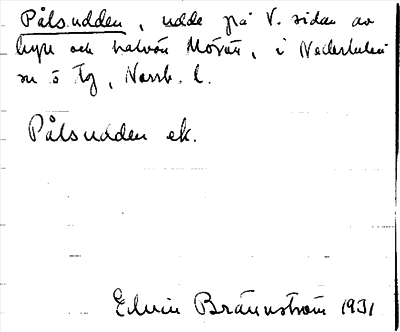 Pålsudden, udde på V. sidan av
och halvön i Nederluleå
sn o Tg, Norrb. l.
Pålsudden ek.
Edvin Brännström 1931